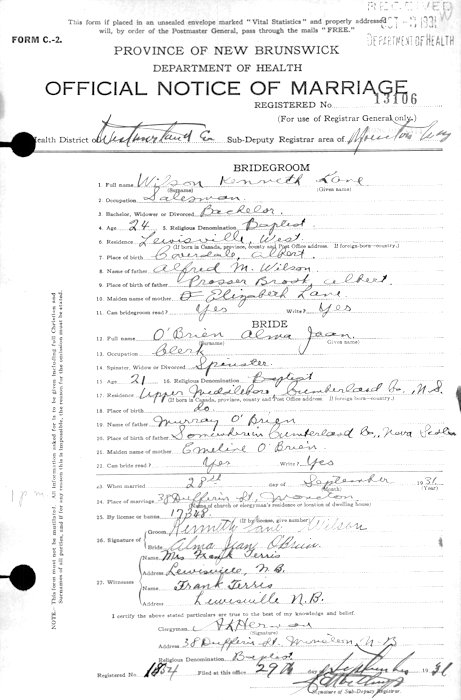 RECEIVED
OCT -3 1931
DEPARTMENT OF HEALTH
This form if placed in an unsealed envelope marked "Vital Statistics" and properly addressed
will, by order of the Postmaster General, pass through the mails "FREE."
FORM C.-2.
PROVINCE OF NEW BRUNSWICK
DEPARTMENT OF HEALTH
OFFICIAL NOTICE OF MARRIAGE
REGISTERED No. 13106
(For use of Registrar General only.)
Health District of Westmorland Co Sub-Deputy Registrar area of Moncton City
BRIDEGROOM
1. Full name Wilson Kenneth Lane
(Surname) (Given name)
2. Occupation Salesman
3. Bachelor, Widower or Divorced Bachelor.
4. Age 24 5. Religious Denomination Baptist
6. Residence Lewisville, West
(If born in Canada, province, county and Post Office address. If foreign-born—country.)
7. Place of birth Coverdale, Albert
8. Name of father Alfred M. Wilson
9. Place of birth of father Prosser Brook, Albert
10. Maiden name of mother Elizabeth Lane
11. Can bridegroom read? Yes Write? Yes
BRIDE
12. Full name O'Brien Alma Jean
(Surname) Given name)
13. Occupation Clerk
14. Spinster, Widow or Divorced Spinster
15. Age 21 16. Religious Denomination Baptist
17. Residence Upper Cumberland Co., N.S.
(If born in Canada, province, county and Post Office address. If foreign-born—country.)
18. Place of birth do.
19. Name of father Murray O'Brien
20. Place of birth of father Cumberland Co, Nova Scotia
21. Maiden name of mother Emeline O'Brien
22. Can bride read? Yes Write? Yes
23. When married 28th day of September 1931
(Year)
24. Place of marriage 38 Dufferin St., Moncton
(Name of church or clergyman's residence or location of dwelling house)
25. By license or banns 17348
(If by license, give number)
26. Signature of Groom Kenneth Lane Wilson
Bride Alma Jean O'Brien
27. Witnesses Name Mrs Frank Ferris
Address Lewisville, N.B.
Name Frank Ferris
Address Lewisville N.B.
I certify the above stated particulars are true to the best of my knowledge and belief.
Clergyman,
(Signature)
Address 38 Dufferin St. Moncton, N.B
Religious Denomination Baptist
Registered No. 1834 Filed at office 29th day of September 1931
Signature of Sub-Deputy Registrar
NOTE: This form must not be mutilated. All information asked for is to be given including full Christian and
Surnames of all parties, and if for any reason this is impossible, the reason for the omission must be stated.
1 pm